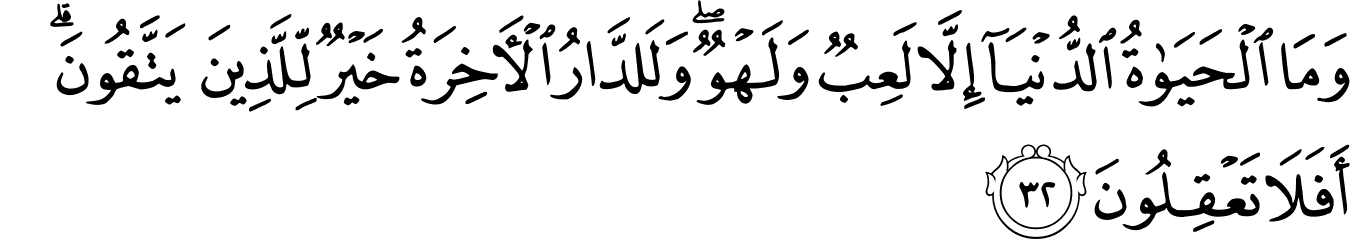 وَمَا ٱلْحَيَوٰةُ ٱلدُّنْيَآ إِلَّا لَعِبٌ وَلَهْوٌ ۖ وَلَلدَّارُ ٱلْأَخِرَةُ خَيْرٌ لِّلَّذِينَ يَتَّقُونَ ۗ
أَفَلَا تَعْقِلُونَ ٣٢